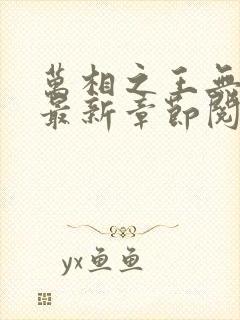 萬相之王無
最新章節閱
yx鱼鱼